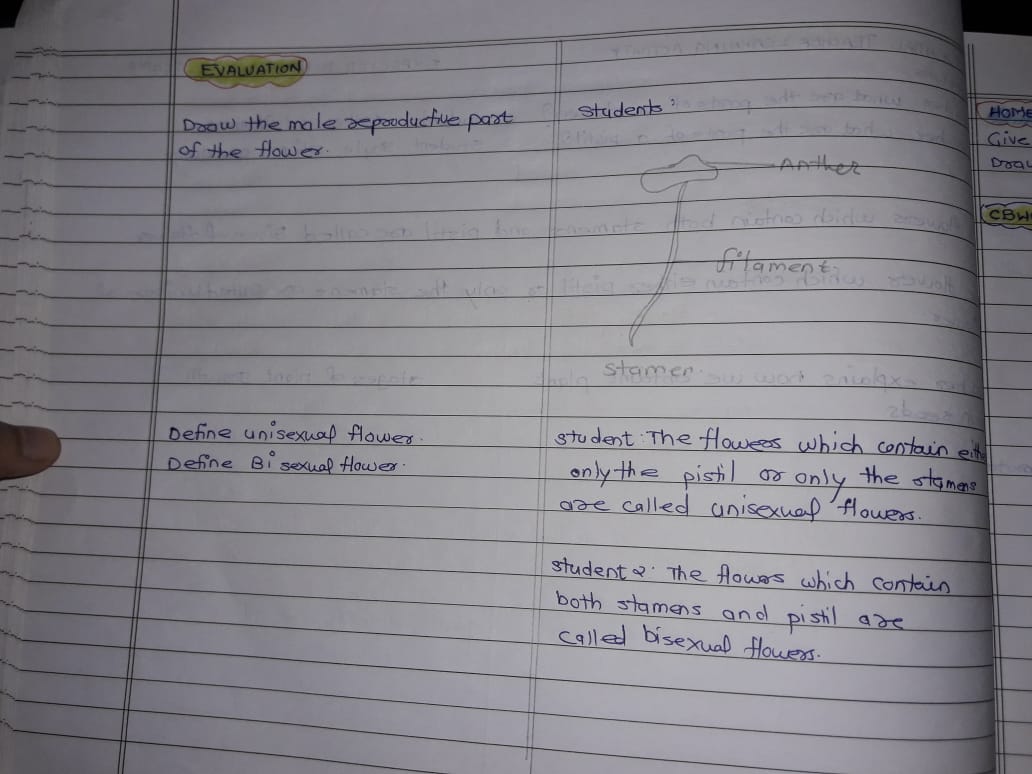 EVALUATION
Draw the male reproductive part
of the flower.
Students:
Anther
filament
Stamen.
Define unisexual flower.
Define Bisexual flower.
student: The flowers which contain
only the pistil or only the stamens
are called unisexual flowers.
student 2: The flowers which contain
both stamens and pistil are
called bisexual flowers.
HOME
Give
Draw
CBW